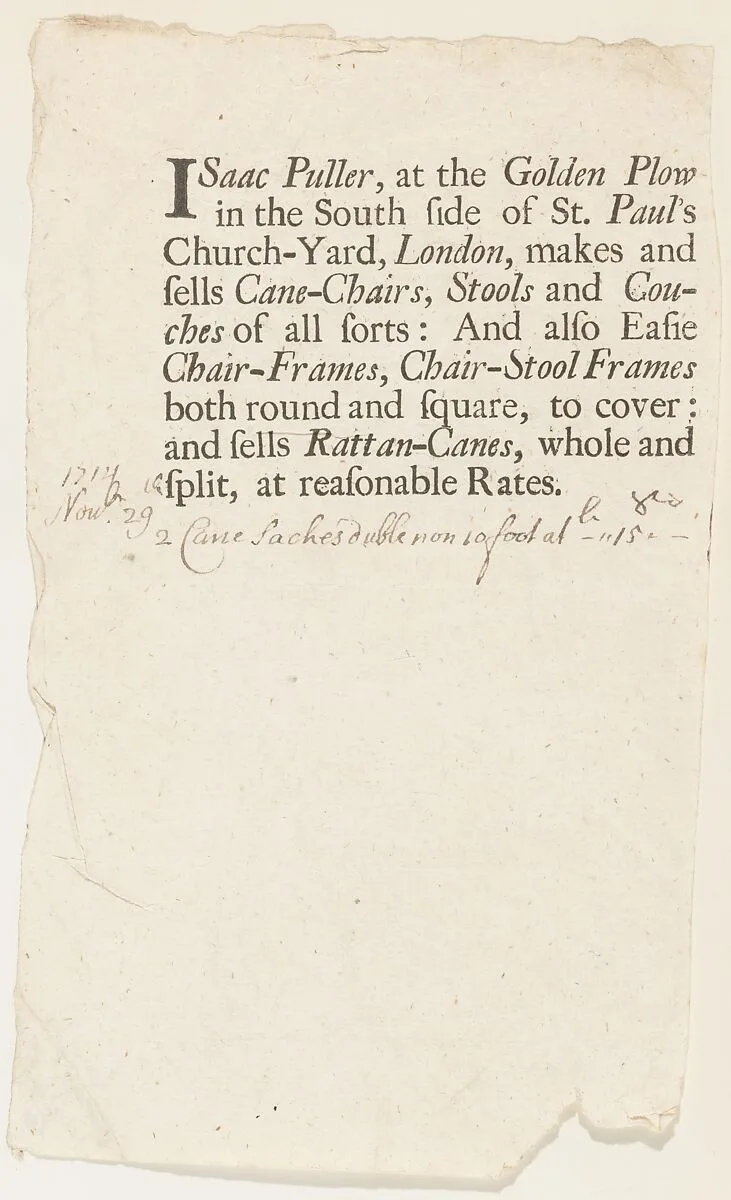 ISaac Puller, at the Golden Plow
in the South ſide of St. Paul's
Church-Yard, London, makes and
ſells Cane-Chairs, Stools and Cou-
ches of all ſorts: And alſo Eaſie
Chair-Frames, Chair-Stool Frames
both round and ſquare, to cover:
and ſells Rattan-Canes, whole and
ſplit, at reaſonable Rates.
1714
Nov. 29
2 Cane Saches duble non 10 foot at - "15 " -